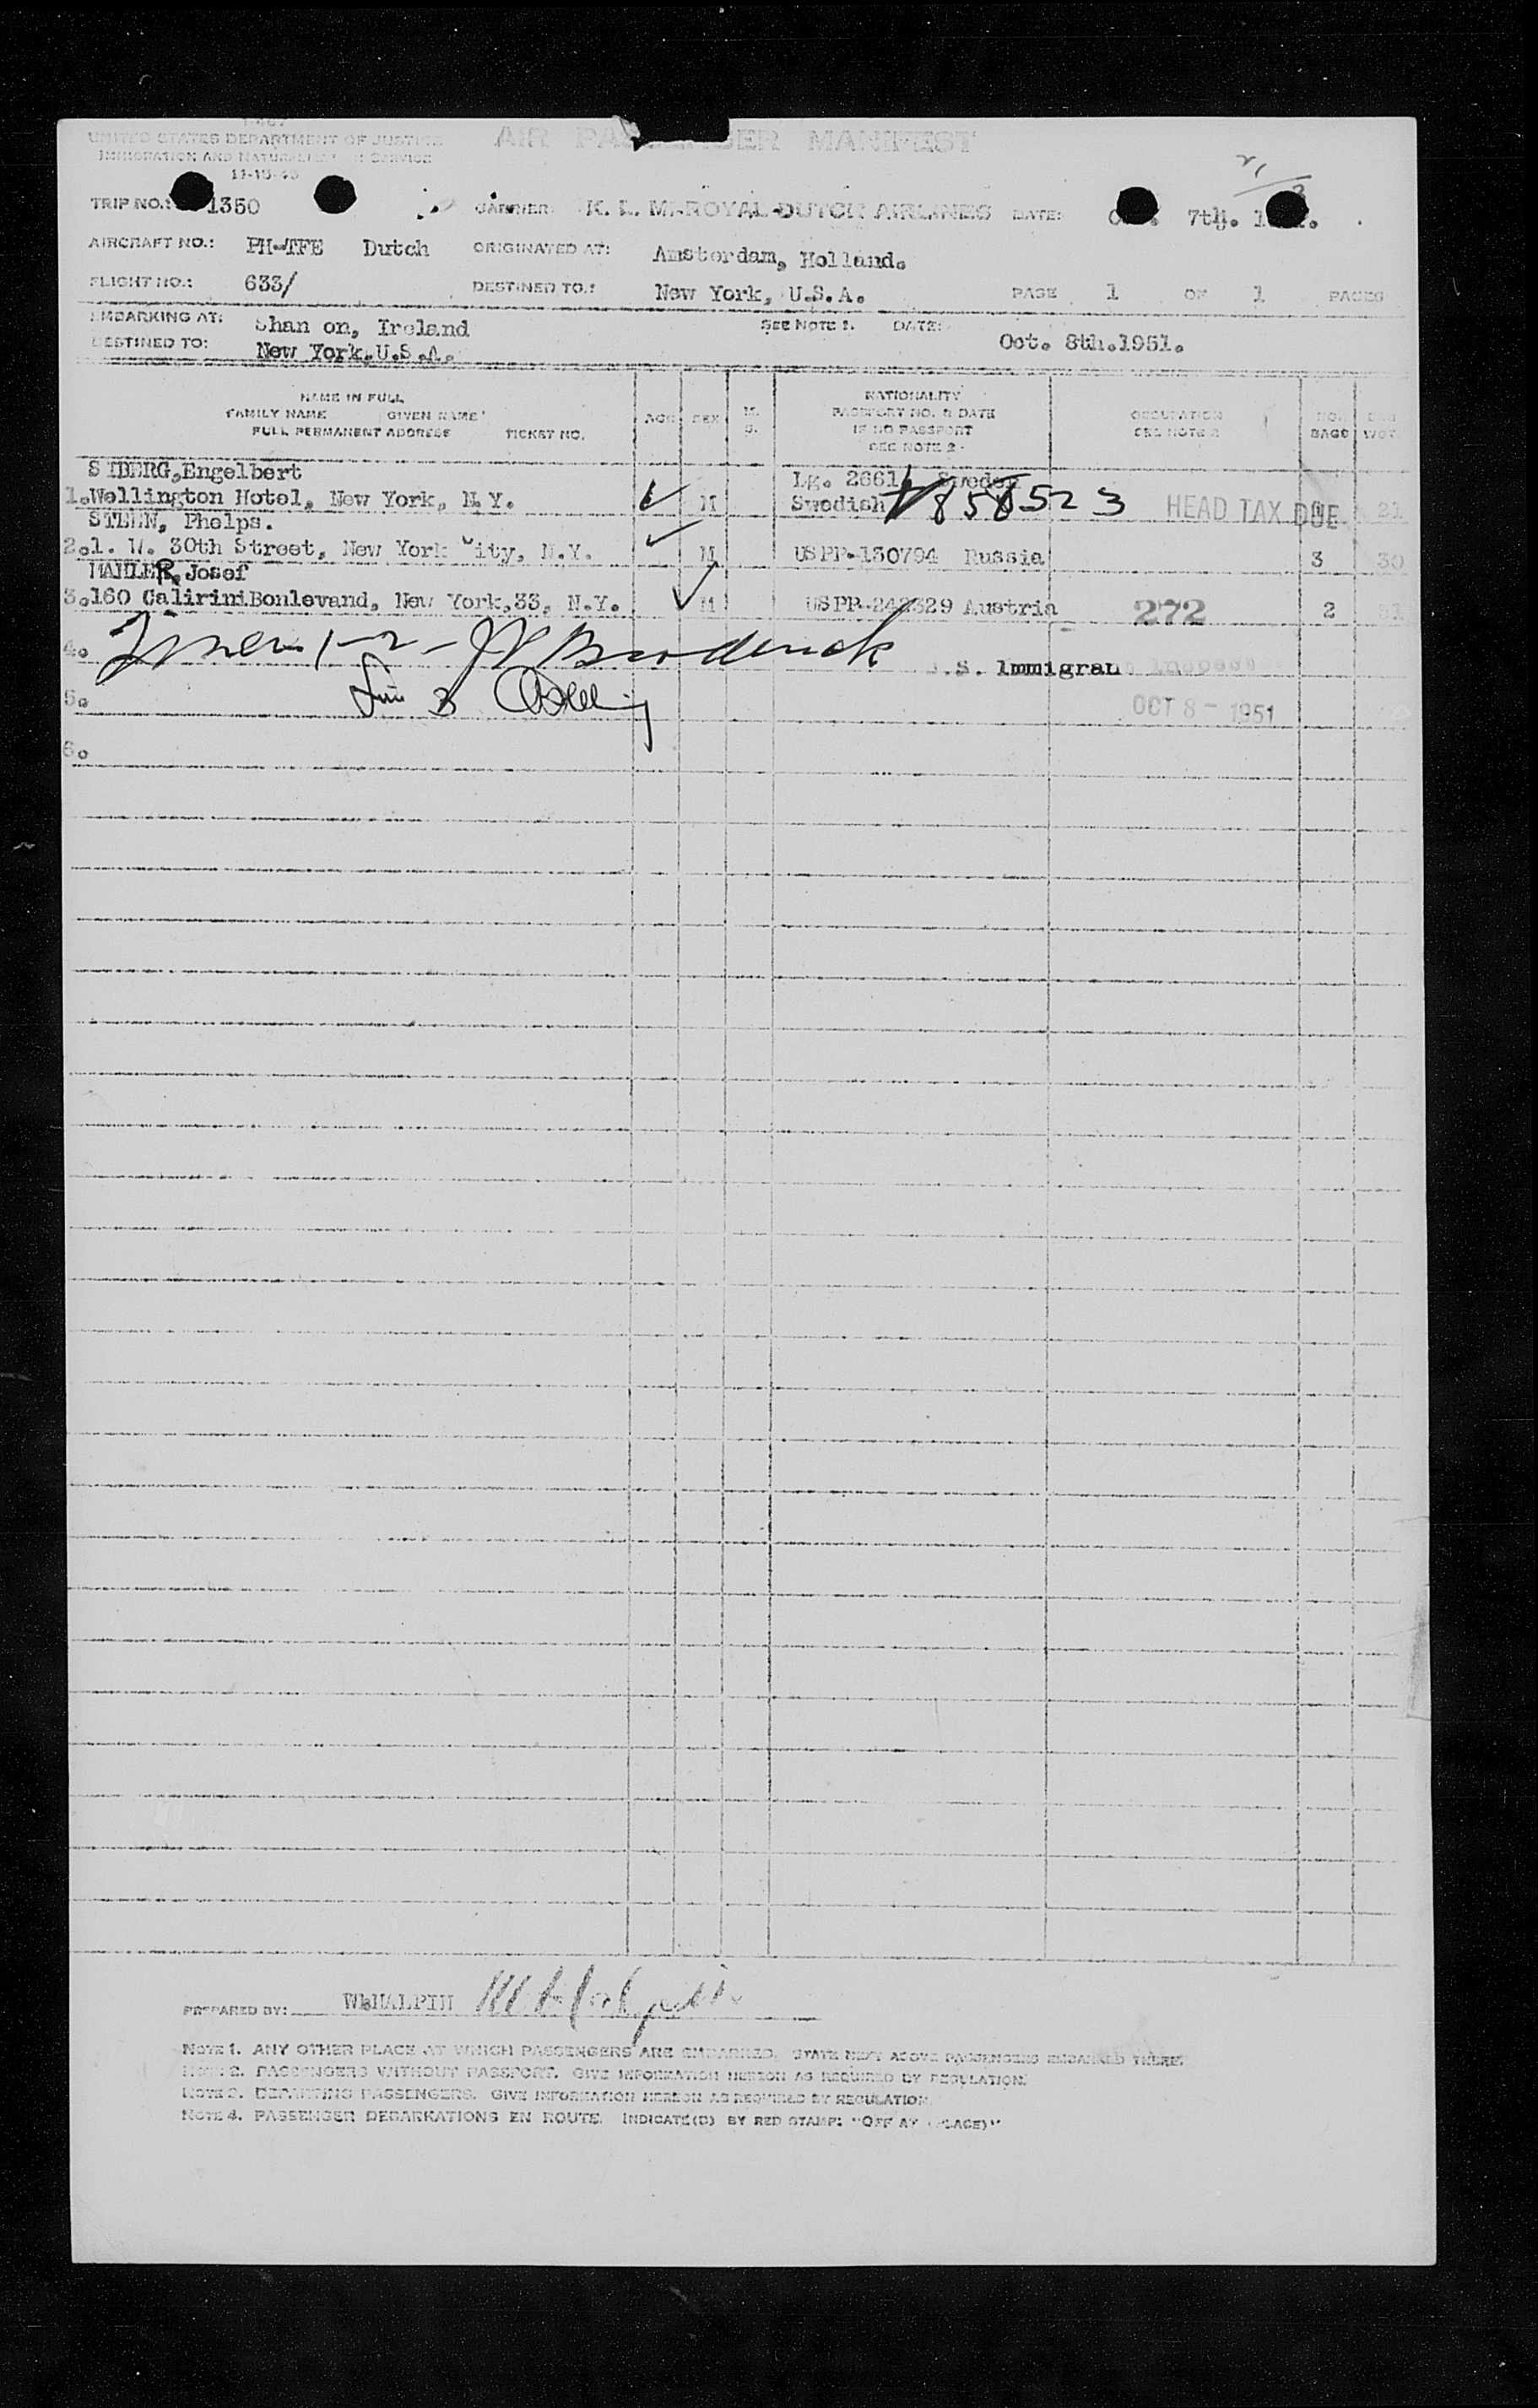 I-467
UNITED STATES DEPARTMENT OF JUSTICE AIR MANIFEST
IMMIGRATION AND SERVICE
11-15-45
TRIP NO.: 1350 CARRIER: K. L. M. ROYAL DUTCH AIRLINES DATE: 7th.
AIRCRAFT NO.: PH-TFE Dutch ORIGINATED AT: Amsterdam, Holland.
FLIGHT NO.: 633/ DESTINED TO: New York, U.S.A. PAGE 1 OF 1 PAGES
EMBARKING AT: Shan on, Ireland SEE NOTE 1. DATE: Oct. 8th.1951.
DESTINED TO: New York.U.S.A.
NAME IN FULL
FAMILY NAME GIVEN NAME
FULL PERMANENT ADDRESS TICKET NO.
AGE SEX M. S.
NATIONALITY
PASSPORT NO. & DATE
IF NO PASSPORT
SEE NOTE 2
OCCUPATION
SEE NOTE 2
NO. BAGS
WGT.
Engelbert Lg. Sweden
1.Wellington Hotel, New York, N.Y. M Swedish V858523 HEAD TAX DUE 21
STEEN, Phelps.
2.1. W. 30th Street, New York City, N.Y. M USPP-130794 Russia 3 30
MAHLER, Josef
3.160 Boulevard, New York,33, N.Y. M USPP-242329 Austria 272 2
4. 1-2 - Broderick .S. Immigrant
5. 3 OCT 8 - 1951
6.
PREPARED BY: W.HALPIN
NOTE 1. ANY OTHER PLACE AT WHICH PASSENGERS ARE EMBARKED. STATE NEXT ABOVE PASSENGERS EMBARKED THERE.
NOTE 2. PASSENGERS WITHOUT PASSPORT. GIVE INFORMATION HEREON AS REQUIRED BY REGULATION.
NOTE 3. DEPARTING PASSENGERS. GIVE INFORMATION HEREON AS REQUIRED BY REGULATION
NOTE 4. PASSENGER DEBARKATIONS EN ROUTE. INDICATE(D) BY RED STAMP: "OFF AT PLACE)"